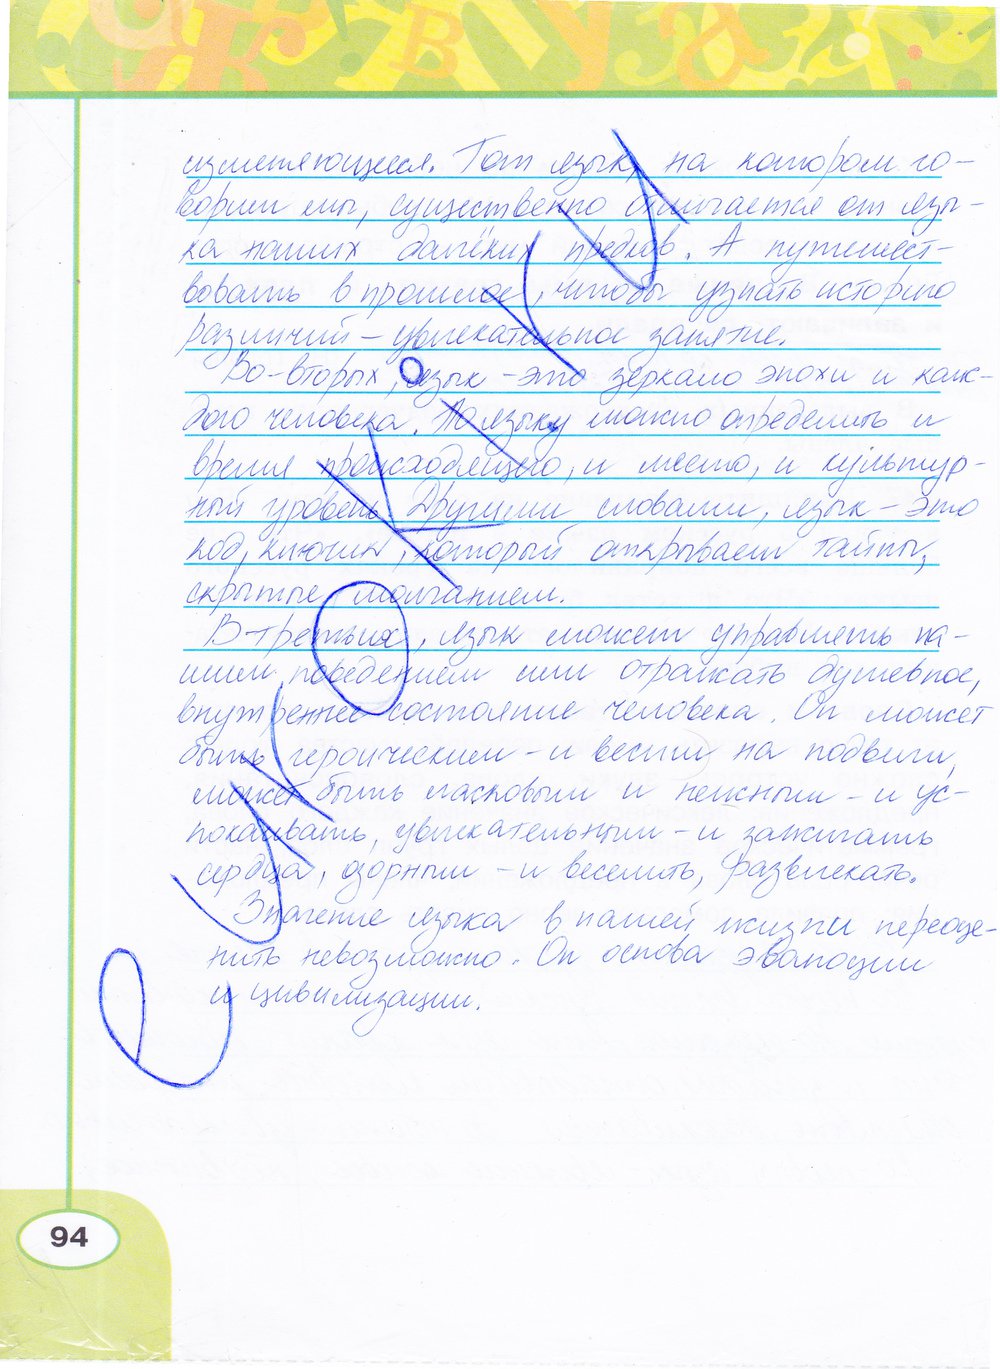 изменяющееся. Тот язык, на котором го-
ворим мы, существенно отличается от язы-
ка наших далёких предков. А путешест-
вовать в прошлое, чтобы узнать историю
различий – увлекательное занятие.
Во-вторых, язык – это зеркало эпохи и каж-
дого человека. По языку можно определить и
время происходящего, и место, и культур-
ный уровень. Другими словами, язык – это
код, ключик, который открывает тайны,
скрытые молчанием.
В-третьих, язык может управлять на-
шим поведением или отражать душевное,
внутреннее состояние человека. Он может
быть героическим – и вести на подвиги,
может быть ласковым и нежным – и ус-
покаивать, увлекательным – и зажигать
сердца, озорным – и веселить, развлекать.
Значение языка в нашей жизни переоце-
нить невозможно. Он основа эволюции
и цивилизации.
94